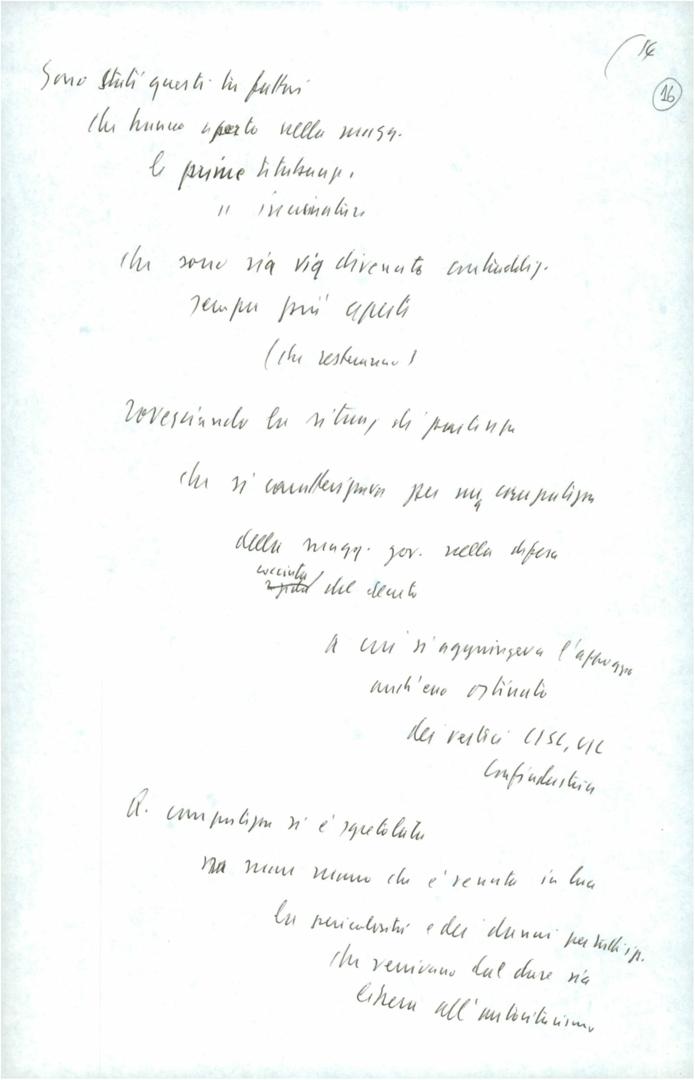 14
16
Sono stati questi tre fattori
che hanno aperto nella magg.
le prime titubanz.
" incrinature
che sono via via divenute contraddiz.
sempre più aperte
(che resteranno)
rovesciando la situaz. di partenza
che si caratterizzava per una compattezza
della magg. gov. nella difesa
cocciuta
del decreto
a cui si aggiungeva l'appoggio
anch'esso ostinato
dei vertici CISL, UIL
Confindustria
Q. compattezza si è sgretolata
man mano che è venuta in luce
la pericolosità e dei danni per tutti
che venivano dal dare via
libera all'autoritarismo